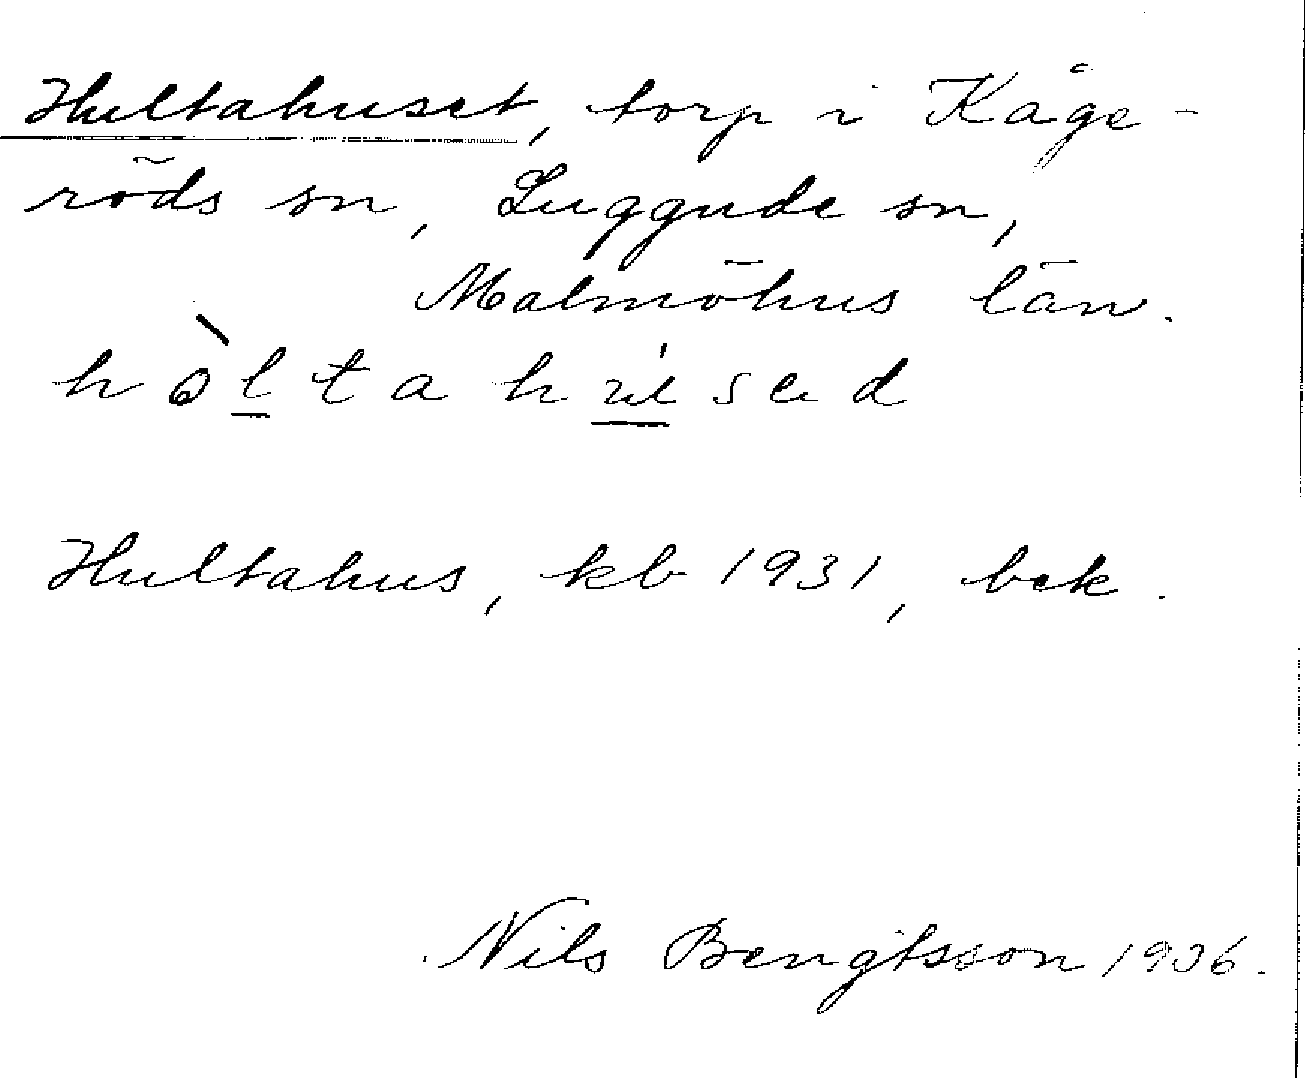 Hultahuset, torp i Kåge-
röds sn, Luggude sn,
Malmöhus län.
hòltahúsed
Hultahus, kb 1931, bek.
Nils Bengtsson 1936.